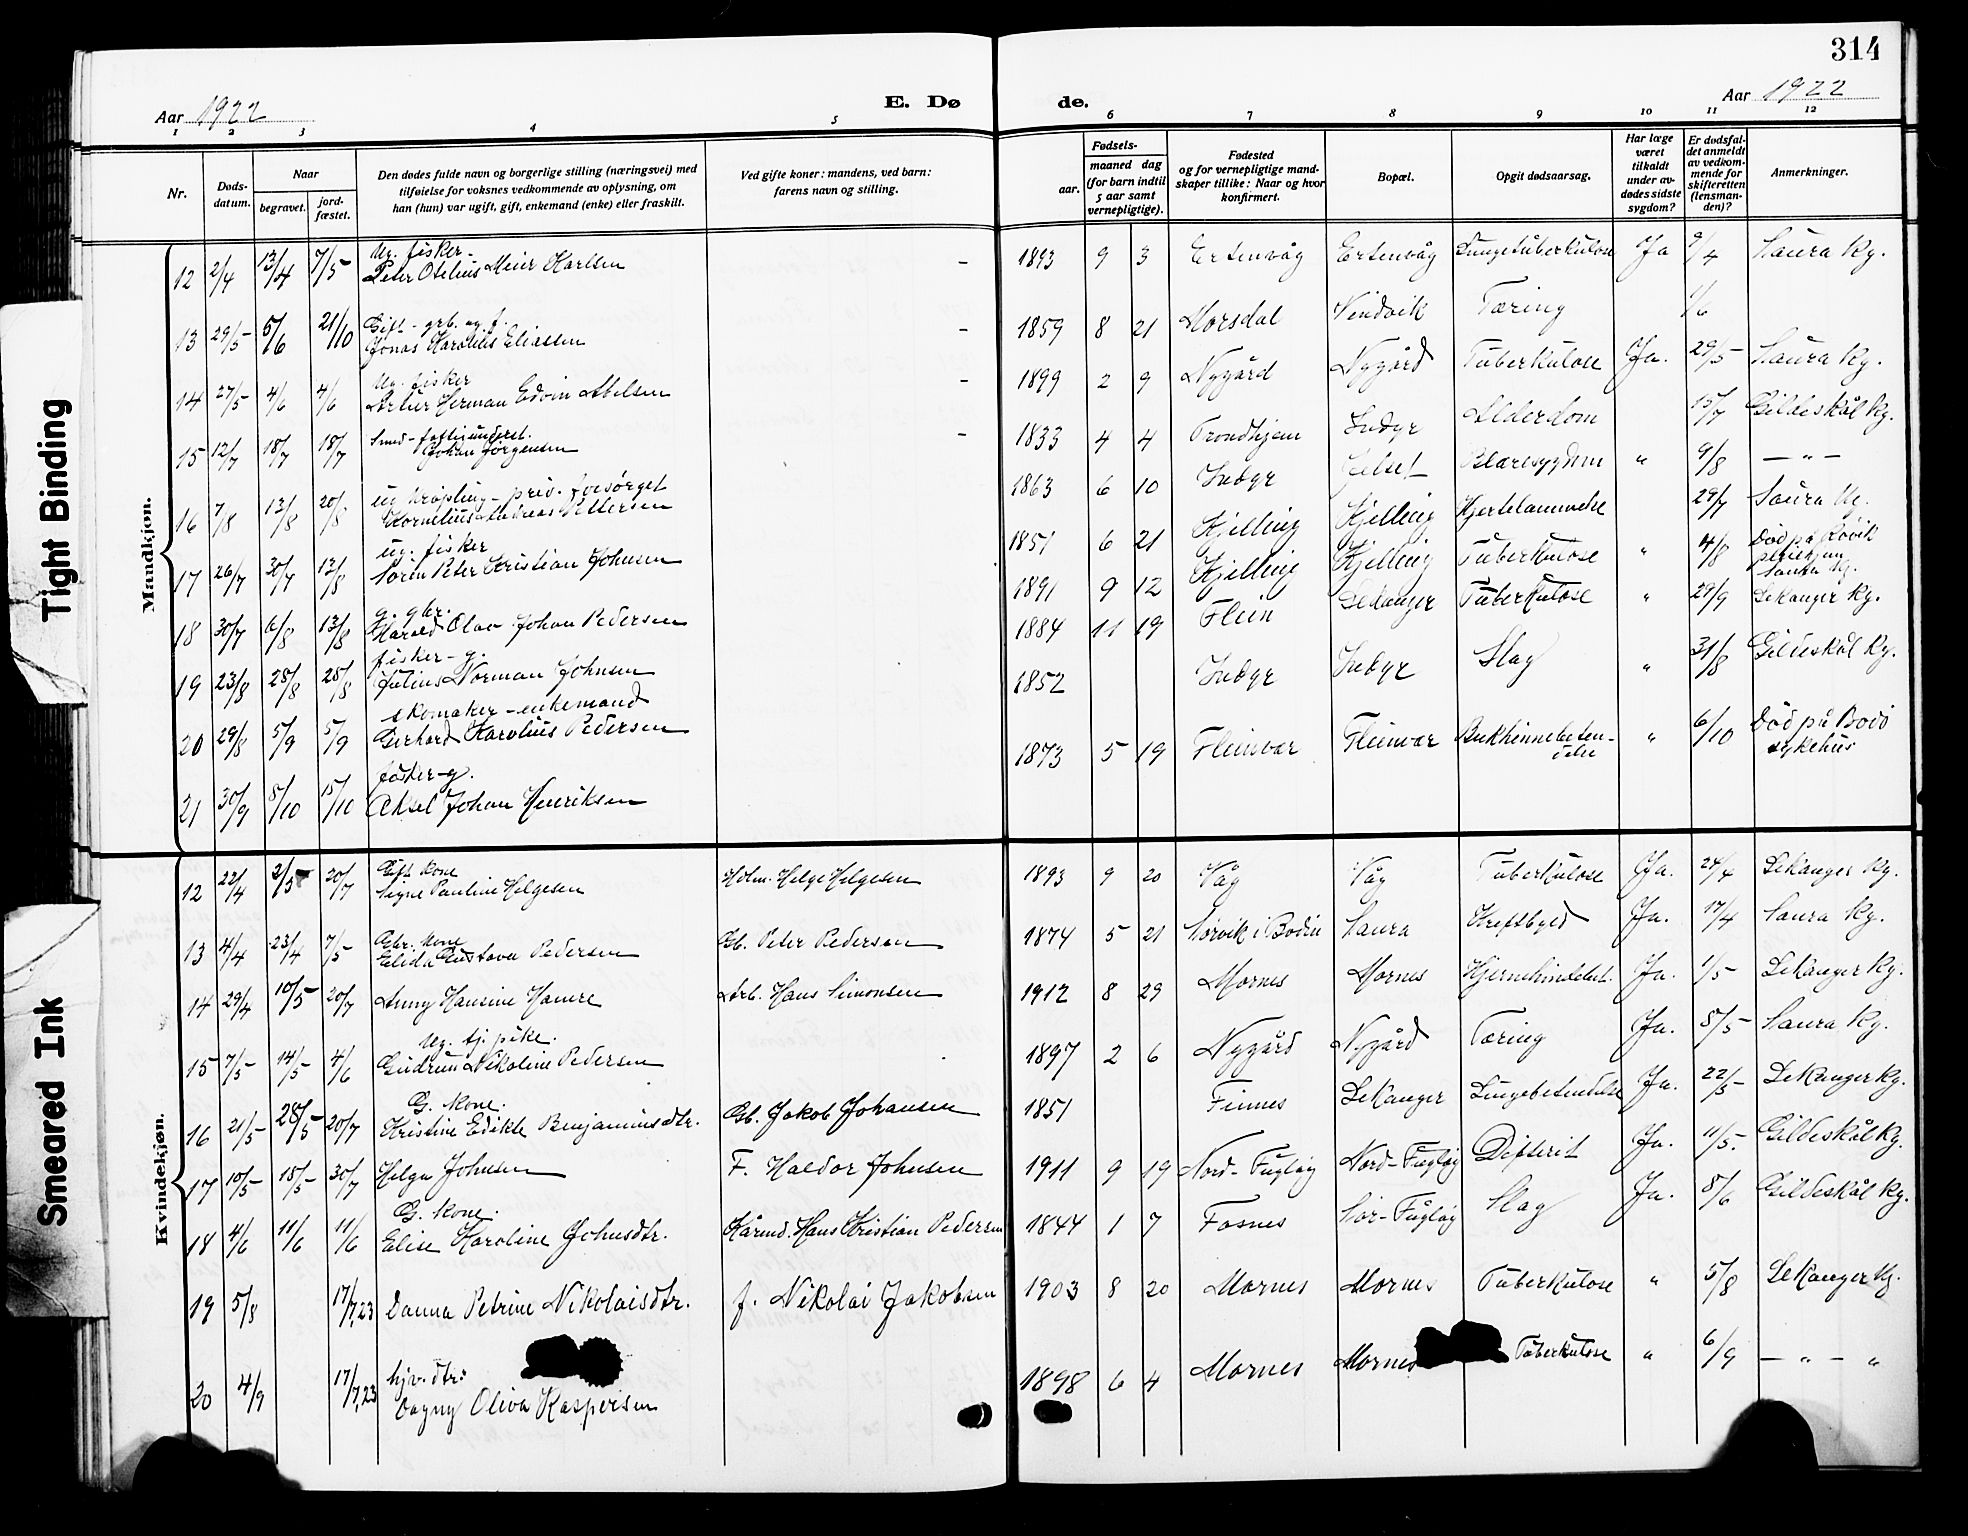 314
Aar 1922
E. Dø
de.
Aar 1922
1 2 3 4 5 6 7 8 9 10 11 12
Nr.
Døds-
datum.
Naar
begravet.
jord-
fæstet.
Den dødes fulde navn og borgerlige stilling (næringsvei) med
tilføielse for voksnes vedkommende av oplysning, om
han (hun) var ugift, gift, enkemand (enke) eller fraskilt.
Ved gifte koner: mandens, ved barn:
farens navn og stilling.
Fødsels-
aar.
maaned dag
(for barn indtil
5 aar samt
vernepligtige).
Fødested
og for vernepligtige mand-
skaper tillike: Naar og hvor
konfirmert.
Bopæl.
Opgit dødsaarsag.
Har læge
været
tilkaldt
under av-
dødes sidste
sygdom?
Er dødsfal-
det anmeldt
av vedkom-
mende for
skifteretten
(lensman-
den)?
Anmerkninger.
Mandkjøn.
Ug. fisker -
12 2/4 13/4 7/5 Peter Otelius Meier Karlsen - 1893 9 3 Ertenvåg Ertenvåg Lungetuberkulose Ja 9/4 Saura kg.
Gift - grb. og f.
13 29/5 5/6 21/10 Jonas Karolius Eliassen - 1859 8 21 Morsdal Vindvik Tæring 1/6
Ug. fisker
14 27/5 4/6 4/6 Artur Herman Edvin Abelsen - 1899 2 9 Nygård Nygård Tuberkulose Ja. 29/5 Saura kg.
Smed - fattigunderst.
15 12/7 18/7 18/7 Johan Jørgensen - 1833 4 4 Trondhjem Indyr Alderdom 15/7 Gildeskål kg.
ug krøpling - priv. forsørget
16 7/8 13/8 20/8 Kornelius Andreas Pettersen 1863 6 10 Indyr Blæresygdom " 9/8 - " -
ug. fisker
17 26/7 30/7 13/8 Sørin Peter Kristian Johnsen 1851 6 21 Kjelling Kjelling Hjertelammelse 29/7 Saura kg.
g. gbr.
18 30/7 6/8 13/8 Harald Olav Johan Pedersen 1891 9 12 Kjelling Kjelling Tuberkulose " 4/8 Død på Røvik
pleiehjem
Saura kg.
fisker - g.
19 23/8 28/8 28/8 Julius Norman Johnsen 1884 11 19 Flein Lekanger Tuberkulose " 29/9 Lekanger kg.
skomaker - enkemand
20 29/8 5/9 5/9 Gerhard Karolius Pedersen 1852 Indyr Indyr Slag " 31/8 Gildeskål kg.
fisker - g.
21 30/9 8/10 15/10 Aksel Johan Henriksen 1873 5 19 Fleinvær Fleinvær Bukhinnebeten-
delse " 6/10 Død på Bodø
sykehus
Kvindekjøn.
Gift kone
12 22/4 2/5 20/7 Signe Pauline Helgesen Holm. Helge Helgesen 1893 9 20 Våg Våg Tuberkulose Ja. 24/4 Lekanger kg.
Gbr. kone
13 4/4 23/4 7/5 Elida Gustava Pedersen Gb. Peter Pedersen 1874 5 21 Sørvik i Bodin Saura Kreftbyld Ja. 17/4 Saura kg.
14 29/4 10/5 20/7 Anny Hansine Hamre Arb. Hans Simonsen 1912 8 29 Mornes Mornes Hjernehindebet. Ja. 1/5 Lekanger kg.
Ug. tj. pike.
15 7/5 14/5 4/6 Gudrun Nikoline Pedersen 1897 2 6 Nygård Nygård Tæring Ja. 8/5 Saura kg.
G. kone.
16 21/5 28/5 20/7 Kristine Edikte Benjaminsdtr. Gb. Jakob Johansen 1851 Finnes Lekanger Lungebetendelse Ja. 22/5 Lekanger kg.
17 10/5 18/5 30/7 Helga Johnsen F. Haldor Johnsen 1911 9 19 Nord-Fugløy Nord-Fugløy Difterit Ja. 11/5. Gildeskål kg.
G. kone.
18 4/6 11/6 11/6 Elise Karoline Johnsdtr. Kårmd. Hans Kristian Pedersen 1844 1 7 Fosnes Sør-Fugløy Slag Ja. 8/6 Gildeskål kg.
19 5/8 17/7,23 Danna Petrine Nikolaisdtr. f. Nikolai Jakobsen 1903 8 20 Mornes Mornes Tuberkulose " 5/8 Lekanger kg.
hjv. dtr:
20 4/9 17/7,23 Dagny Oliva Kaspersen 1898 6 4 Mornes Mornes Tuberkulose " 6/9 - " - "
Tight Binding
Smeared Ink